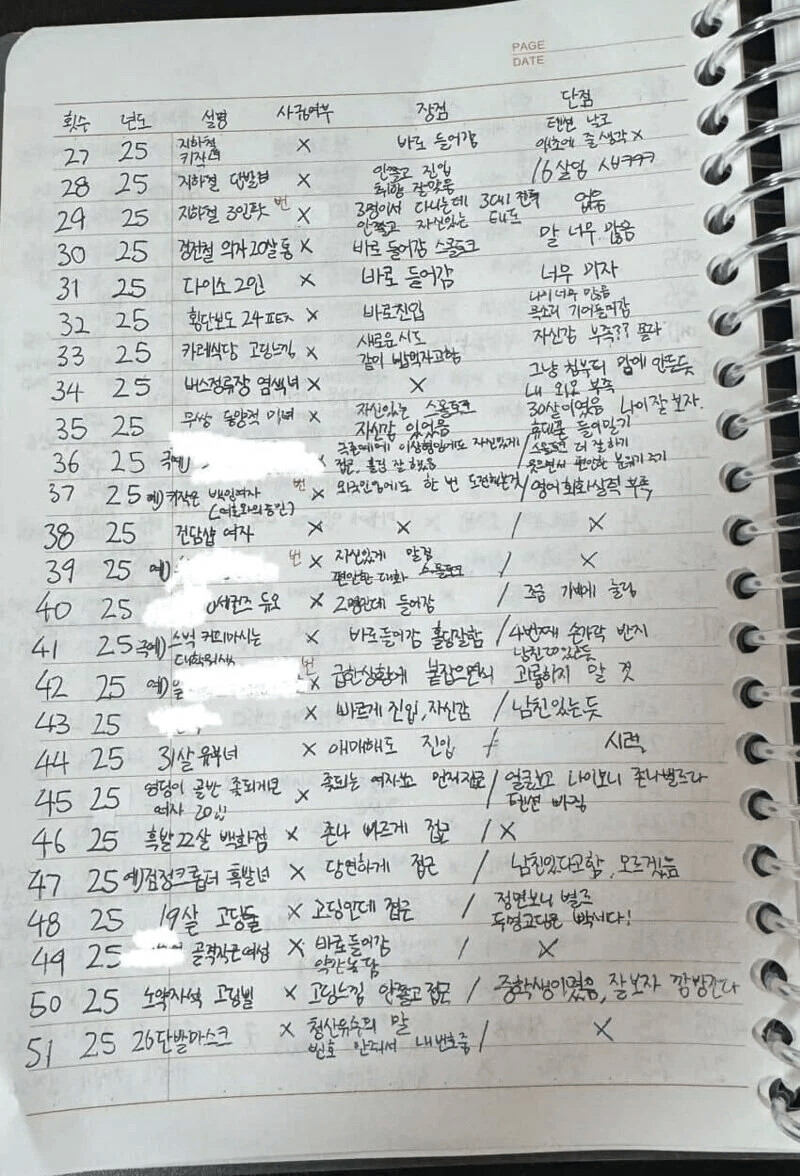 PAGE
DATE
횟수 년도 설명 사귐여부 장점 단점
27 25 지하철 키작녀 X 바로 들어감 텐션 낮고 애초에 줄 생각 X
28 25 지하철 단발녀 X 안쫄고 진입 취향 잘맞음 16살임 ㅅㅂㅋㅋㅋ
29 25 지하철 3인팟 번 X 3명이서 다니는데 3대1 전투 안쫄고 자신있는 태도 없음
30 25 의자 20살 통 X 바로 들어감 스몰토크 말 너무 많음
31 25 다이소 2인 X 바로 들어감 너무 미자
32 25 횡단보도 24 X 바로진입 나이너무 많음 목소리 기어들어감
33 25 카레식당 고딩느낌 X 새로운시도 같이 밥먹자고함 자신감 부족?? 몰라
34 25 버스정류장 염색녀 X X 그냥 첨부터 맘에 안든듯 내 외모 부족
35 25 무쌍 동양적 미녀 X 자신있는 스몰토크 자신감 있었음 30살이였음 나이 잘 보자.
36 25 극예) X 극예에 이상형임에도 자신있게 접근, 홀딩 잘 했음 / 휴대폰 들이밀기 스몰토크 더 잘하기 웃으면서 편안한 분위기 주기
37 25 예) 키작은 백인여자 번 X 외국인임에도 한 번 도전하는것 / 영어회화실력 부족
38 25 전담샵 여자 X X / X
39 25 예) 번 X 자신있게 말검 편안한 대화 스몰토크 / X
40 25 듀오 X 2명인데 들어감 / 조금 기빠에 눌림
41 25 극예) 스벅 커피마시는 대학원생 X 바로들어감 홀딩잘함 / 4번째 손가락 반지 남친있는듯
42 25 예) 을 번 X 급한상황에 붙잡으면서 괴롭히지 말 것
43 25 X 바르게 진입, 자신감 / 남친있는듯
44 25 31살 유부녀 X 애매해도 진입 / 시력
45 25 엉덩이 골반 좆되게큰 여자 20 X 좆되는 여자보고 먼저접근 / 얼굴보고 나이보니 존나별로라 텐션 빠짐
46 25 흑발 22살 백화점 X 존나 빠르게 접근 / X
47 25 예) 검정크롭티 흑발녀 X 당연하게 접근 / 남친있다고함, 모르겠음
48 25 19살 고딩들 X 고딩인데 접근 / 정면보니 별로 두명고딩은 빡세다!
49 25 골격작근여성 X 바로들어감 약간농담 / X
50 25 노약자석 고딩삘 X 고딩느낌 안쫄고접근 / 중학생이였음, 잘보자 깜방간다
51 25 26단발마스크 X 청산유수의 말 번호 안줘서 내번호줌 / X